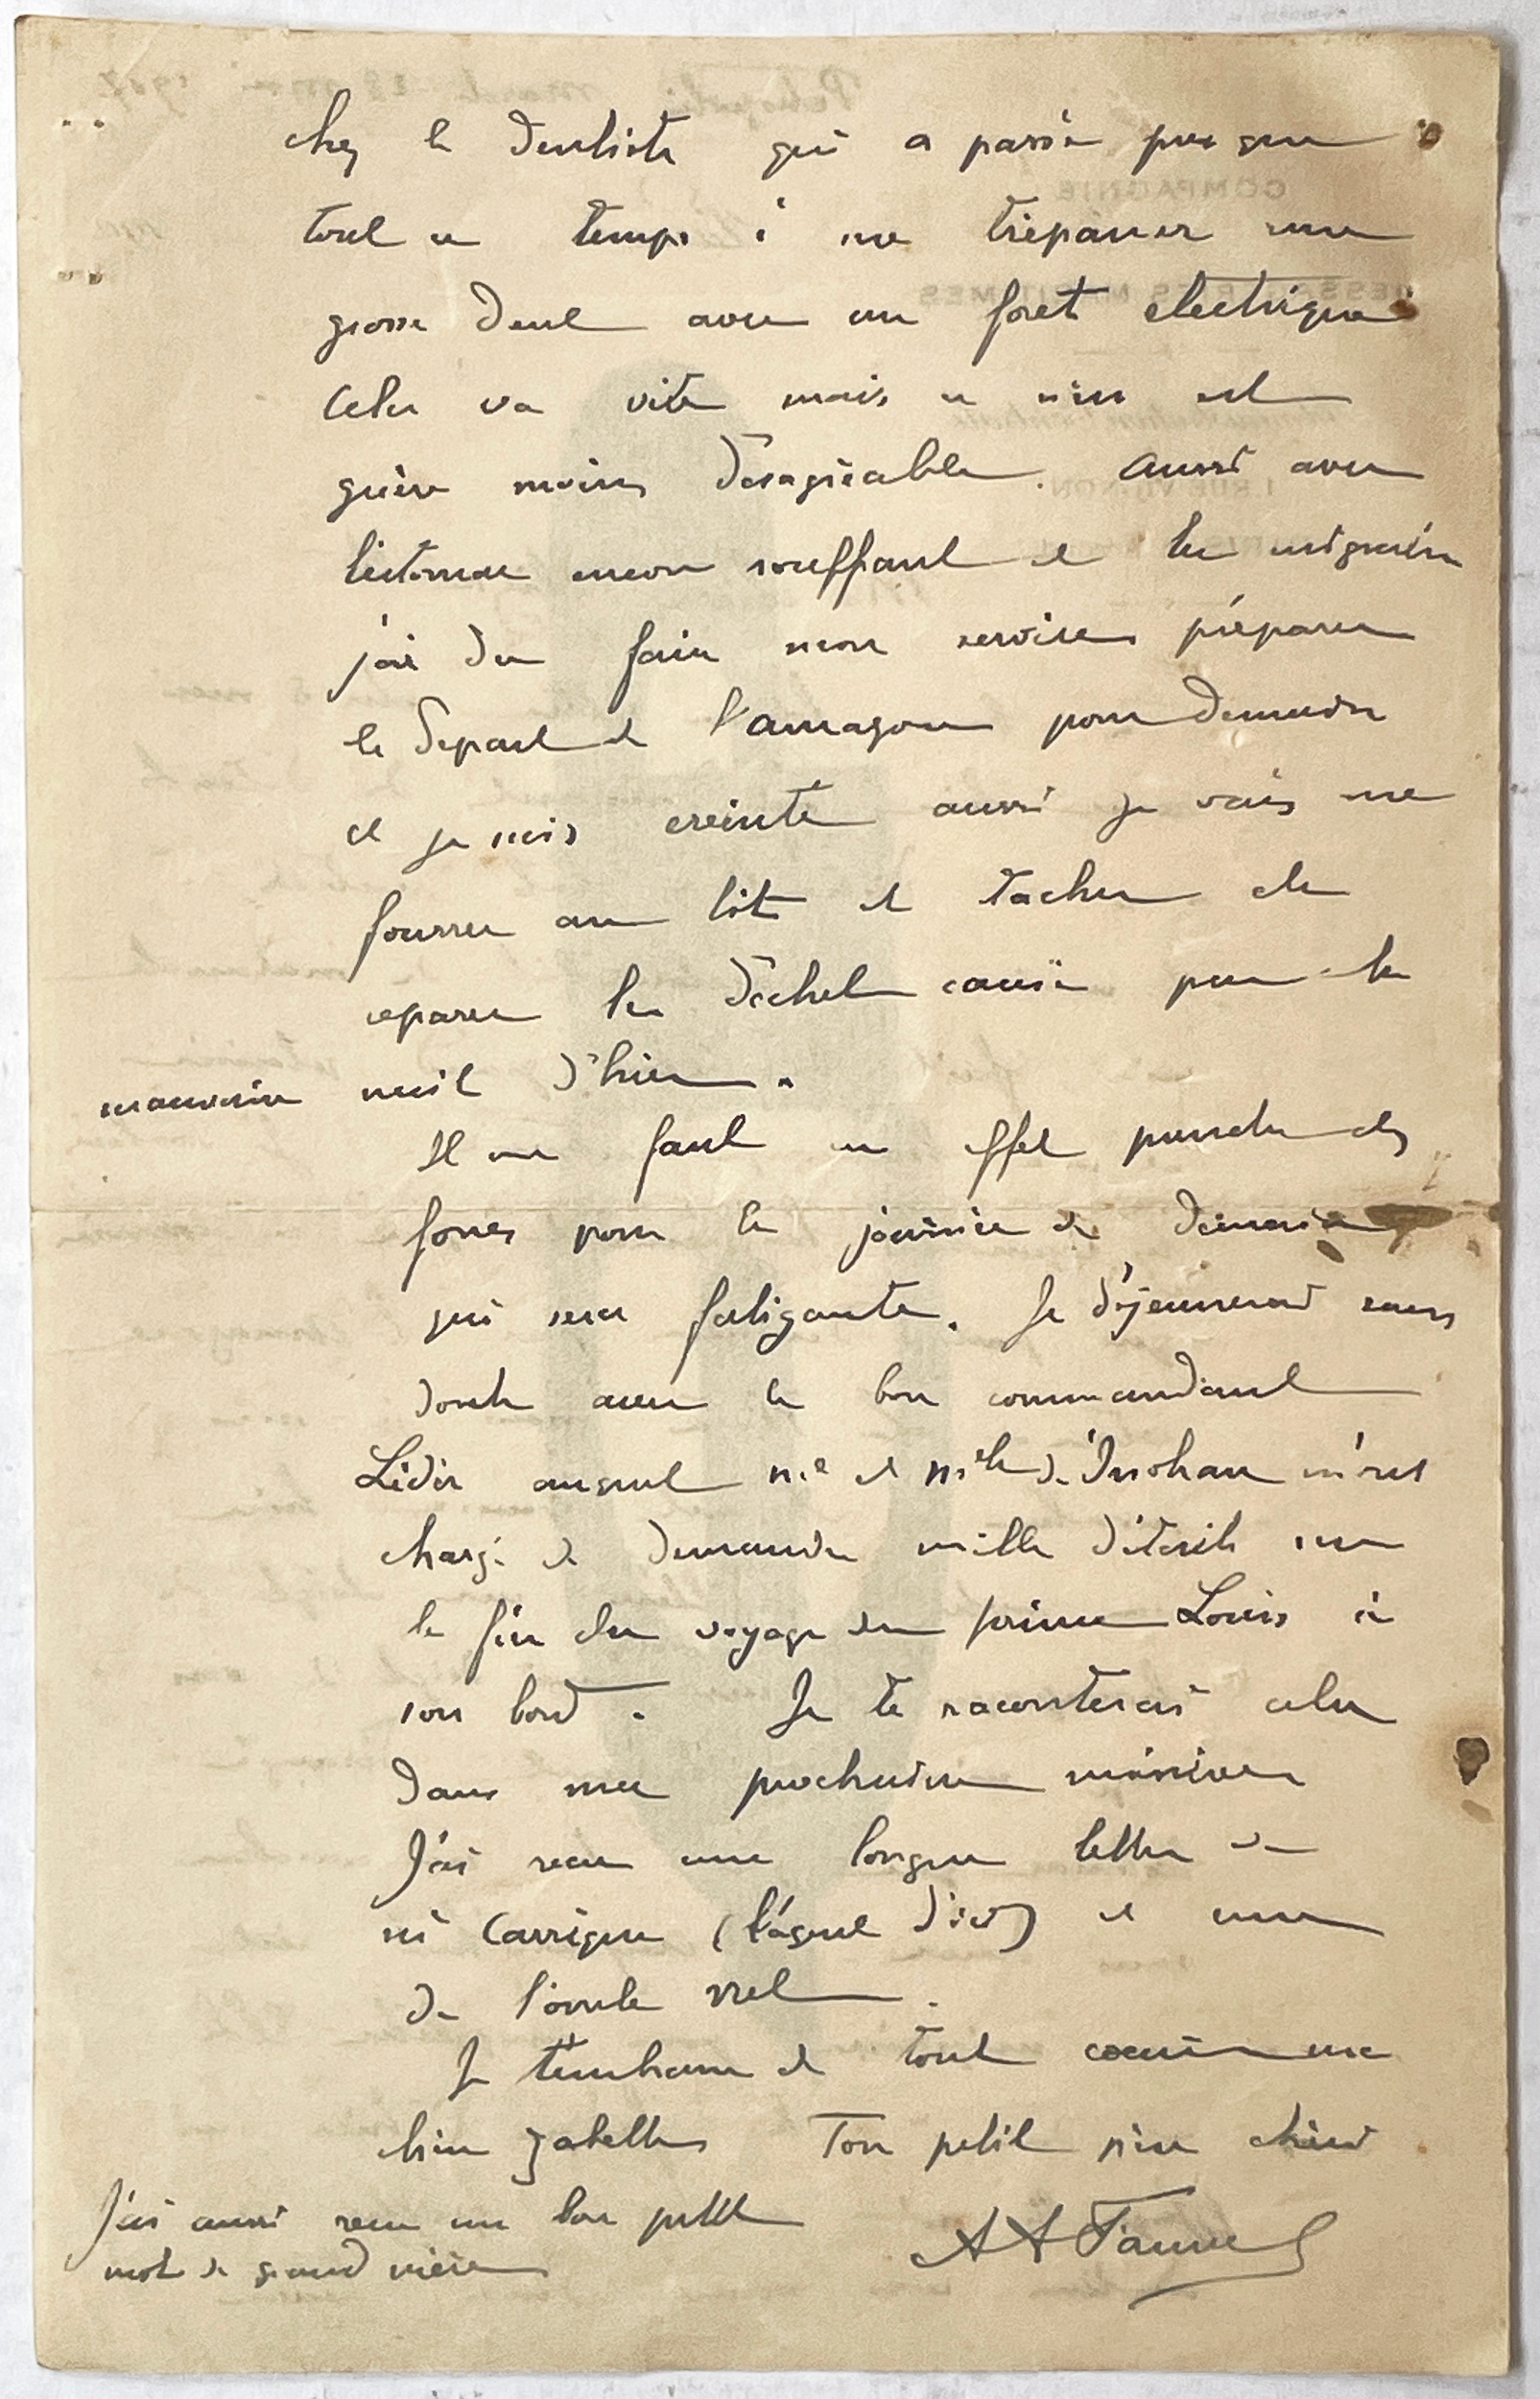 chez le dentiste qui a passé presque
tout ce temps à me trépaner une
grosse dent avec un foret electrique
Cela va vite mais ce n'en est
guère moins désagréable. Aussi avec
l'estomac encore souffrant et la migraine
j'ai du faire mon service préparer
le Depart de l'amazone pour demain
et je suis ereinté aussi je vais me
fourrer au lit et tacher de
reparer le déchet causé par la
mauvaise nuit d'hier.
Il me faut en effet prendre des
forces pour la journée de demain
qui sera fatigante. Je déjeunerai sans
doute avec le bon commandant
Lidin auquel me et melle de m'ont
chargé de demander mille détails sur
la fin du voyage du prince Louis à
son bord. Je te raconterai cela
dans ma prochaine missive
J'ai recu une longue lettre de
Mr Carrique (l'agent d'ici) et une
de l'oncle
Je t'embrasse de tout coeur ma
chère Zabelle Ton petit père chéri
A A Fauvel
J'ai aussi recu un bon petit
mot de grand mère